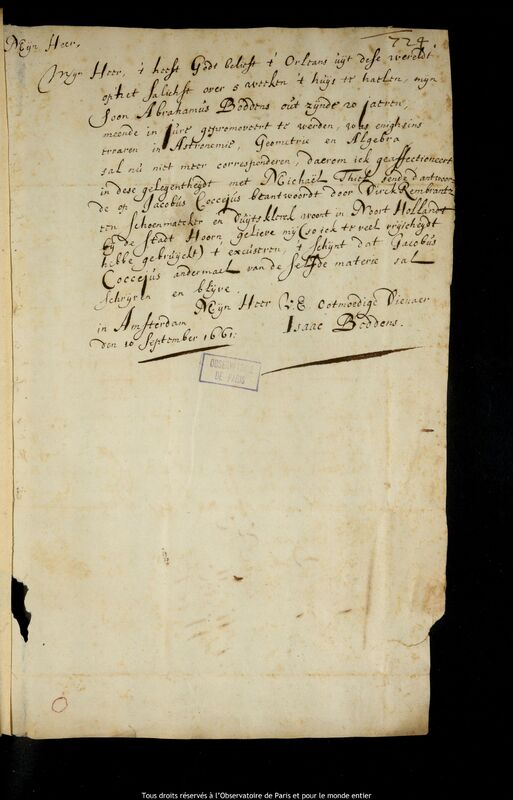 724.
Mijn Heer,
Mijn Heer, 't heeft Gode belieft t' Orleans uijt dese wereldt
op het salichst over 5 weeken 't huijs te haelen, mijn
Soon Abrahamus Boddens oudt zijnde 20 jaeren,
meende in jure gepromoveert te werden, was enighsins
ervaren in Astronomie, Geometrie en Algebra
sal nu niet meer corresponderen, daerom ick geaffectioneert
in dese gelegentheijdt met Michaël Thiel sende d'antwoor
de op Jacobus Coccejus beantwoordt door Dirck Rembrantz
een Schoenmaecker en Duijtsklerck woont in Noort Hollandt
bij de Stadt Hoorn, gelieve mij (so ick te veel vrijicheijdt
hebbe gebruijckt) t' excuseren, t' schijnt dat Jacobus
Coccejus andermael van de selfde materie sal
schrijven en blijve.
Mijn Heer U.E. ootmoedige Dienaer
in Amsterdam
Isaac Boddens.
den 10 September 1661:
OBSERVATOIRE
DE PARIS
Tous droits réservés à l'Observatoire de Paris et pour le monde entier